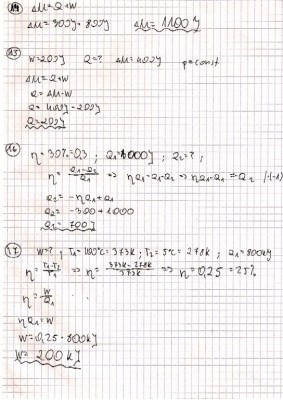 14 ΔM = Q + W
ΔM = 300J + 800J ΔM = 1100J
15 W = 200J Q = ? ΔM = 400J p = const
ΔM = Q + W
Q = ΔM - W
Q = 400J - 200J
Q = 200J
16 η = 30% = 0,3 ; Q1 = 1000J ; Q2 = ? ;
η = Q1-Q2/Q1 => ηQ1 = Q1-Q2 => ηQ1-Q1 = -Q2 /(-1)
Q2 = -ηQ1 + Q1
Q2 = -300 + 1000
Q2 = 700J
17 W = ? ; T1 = 100°C = 373K ; T2 = 5°C = 278K ; Q1 = 800kJ
η = T1-T2/T1 => η = 373K - 278K/373K => η = 0,25 = 25%
η = W/Q1
ηQ1 = W
W = 0,25 · 800kJ
W = 200kJ